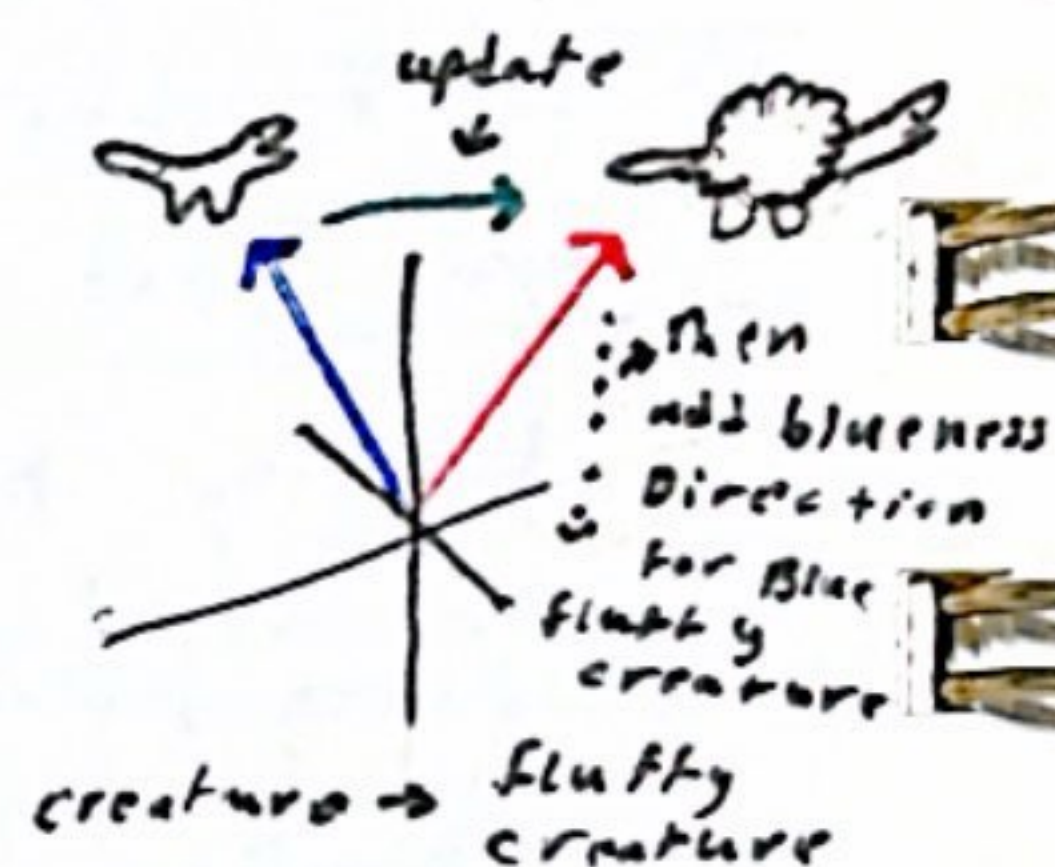 update
then
add blueness
Direction
for Blue
fluffy
creature
creature → fluffy
creature